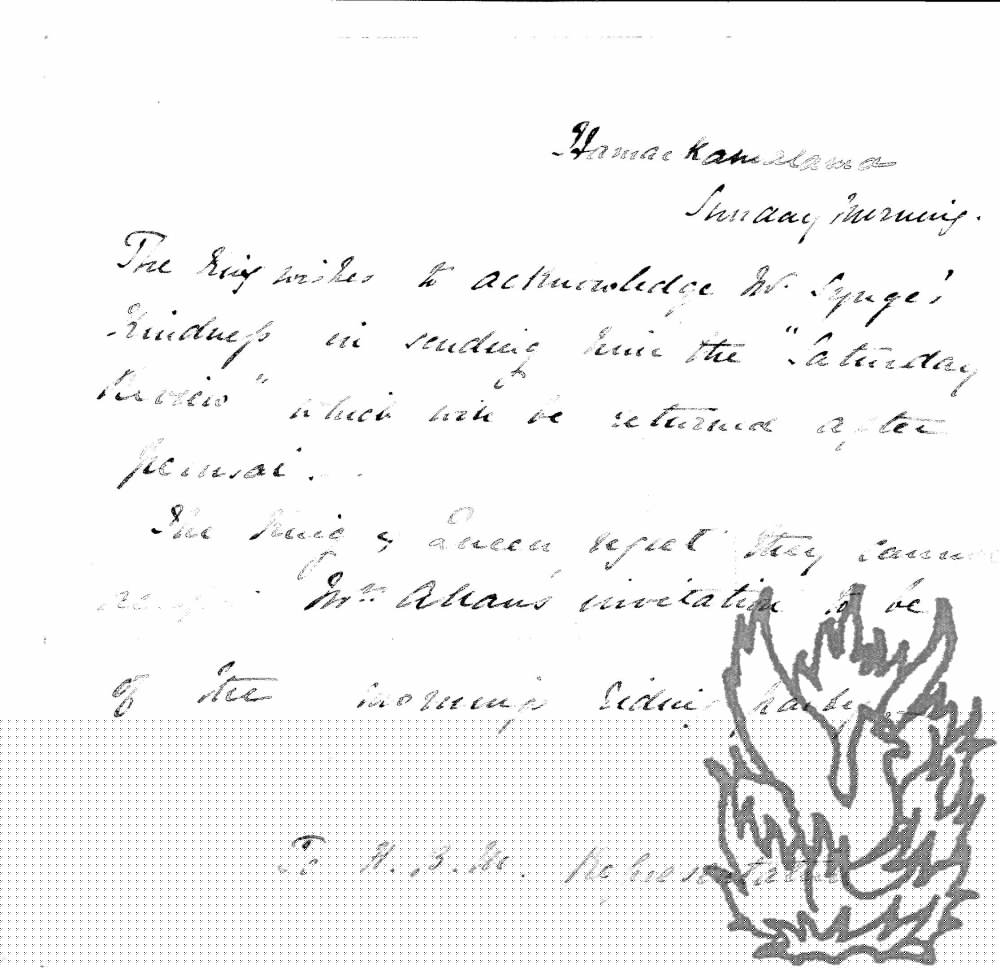 Hamaikamalama
Sunday Morning.
The King wishes to acknowledge Mr. Synge's
Kindness in sending him the "Saturday
Review" which will be returned after
perusal.
The King & Queen regret they cannot
accept Mrs. Allan's invitation to be
of the morning riding party
To H. B. M. Representative